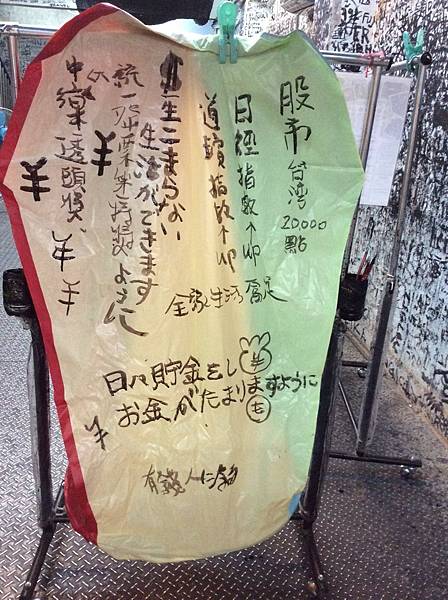 股市 台湾 20,000 點
日経指數个 仰
道瓊指數个 仰
全家生活 富足
一生こまらない
生活ができます
ように
統一発票第特獎
中樂透頭獎
¥
¥
¥ ¥
日々貯金をし
お金がたまりますように
¥
有錢人に